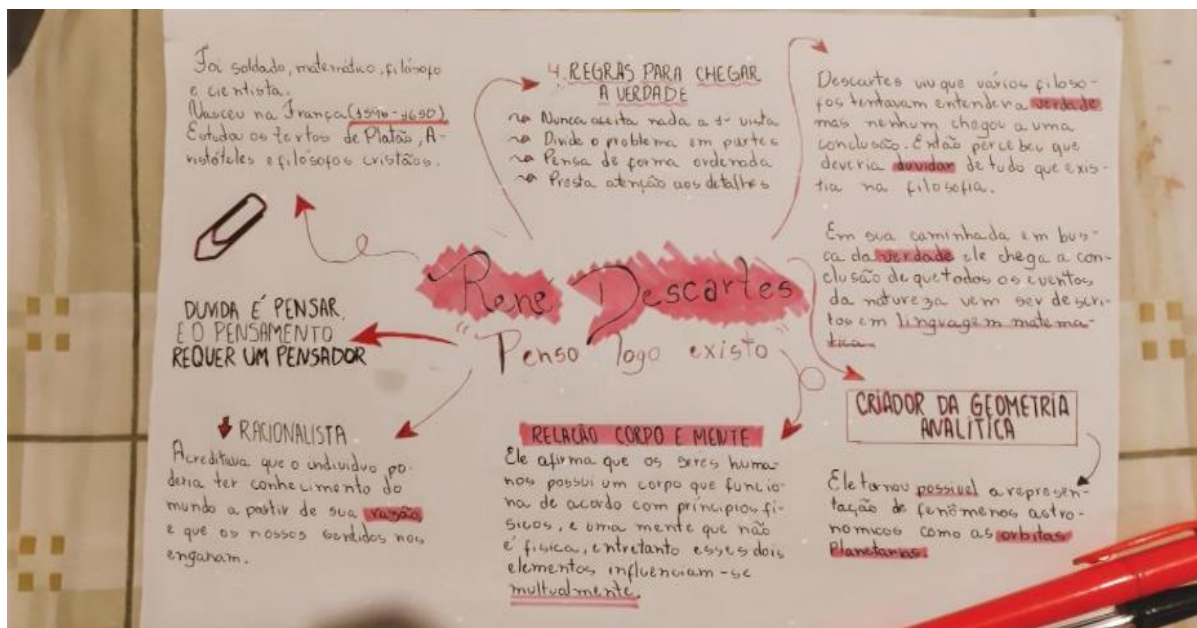 Foi soldado, matemático, filósofo
e cientista.
Nasceu na França (1596-1650)
Estuda os textos de Platão, A-
ristóteles e filósofos cristãos.
4 REGRAS PARA CHEGAR
A VERDADE
Nunca aceita nada a 1ª vista
Divide o problema em partes
Pensa de forma ordenada
Presta atenção aos detalhes
Descartes viu que vários filoso-
fos tentavam entender a verdade
mas nenhum chegou a uma
conclusão. Então percebeu que
deveria duvidar de tudo que exis-
tia na filosofia.
Em sua caminhada em bus-
ca da verdade ele chega a con-
clusão de que todos os eventos
da natureza vem ser descri-
tos em linguagem matema-
tica.
René Descartes
"Penso logo existo"
DUVIDA É PENSAR,
E O PENSAMENTO
REQUER UM PENSADOR
RACIONALISTA
Acreditava que o individuo po-
deria ter conhecimento do
mundo a partir de sua razão,
e que os nossos sentidos nos
enganam.
RELAÇÃO CORPO E MENTE
Ele afirma que os seres huma-
nos possui um corpo que funcio-
na de acordo com princípios fí-
sicos, e uma mente que não
é física, entretanto esses dois
elementos influenciam-se
multualmente.
CRIADOR DA GEOMETRIA
ANALÍTICA
Ele tornou possivel a represen-
tação de fenômenos astro-
nomicos como as orbitas
Planetarias.